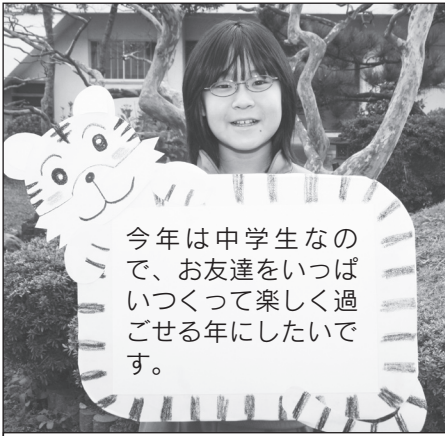 今年は中学生なの
で、お友達をいっぱ
いつくって楽しく過
ごせる年にしたいで
す。